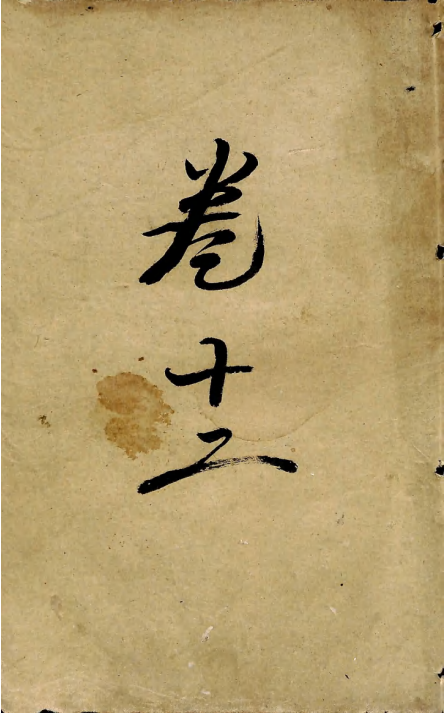 卷十二